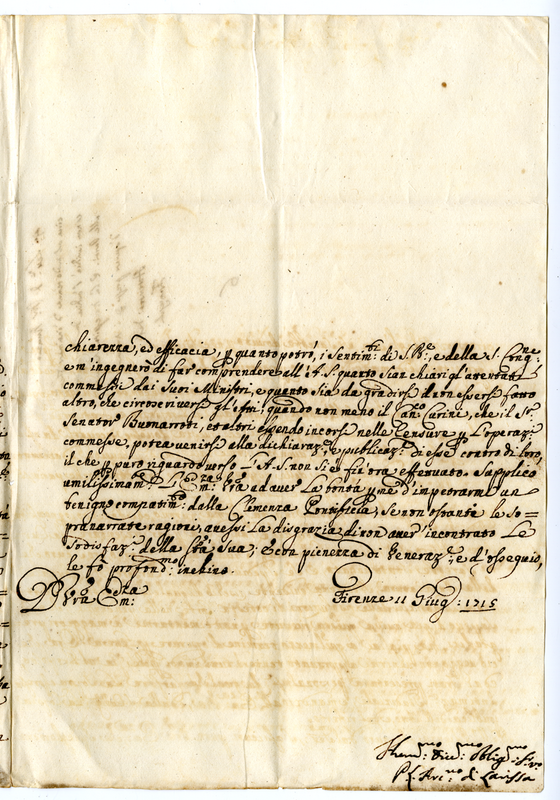 chiarezza, ed efficacia, p quanto potrò, i sentim:ti di S. Be, e della S. Cong:ne
e m'ingegnerò di far comprendere all'A. S. quanto sian chiari gl'attentati
commessi dai suoi Ministri, e quanto sia da gradirsi il non essersi fatto
altro, che circoscriversi gl'atti; quando non meno il
Senator Buonarroti, et altri essendo incorsi nelle Censure p l'operaz:i
commesse, potea venirsi alla dichiaraz:e, e publicaz:e di esse contro di loro,
il che p puro riguardo verso L'A. S. non si è fin'ora effettuato. Supplico
umilissimam:te L'Em:za Vra ad aver la bontà p me d'impetrarmi un
benigno compatim:to dalla Clemenza Pontificia, se non ostante le so=
pranarrate ragioni, avessi la disgrazia di non aver'incontrato Le
Sodisfaz:i della Stà Sua; & con pienezza di Veneraz:e, e d'ossequio,
le fò profond:mo inchino.
D Vra Em:za
Firenze 11 Giug: 1715
Hum:mo Dev:mo Oblig:mo
di Larissa